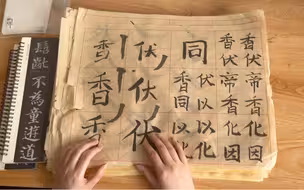 伏香帝香化因
香伏帝香化因
同
伏以以化
香同以化
伏伏伏
香香香
髫齔不為童遊道